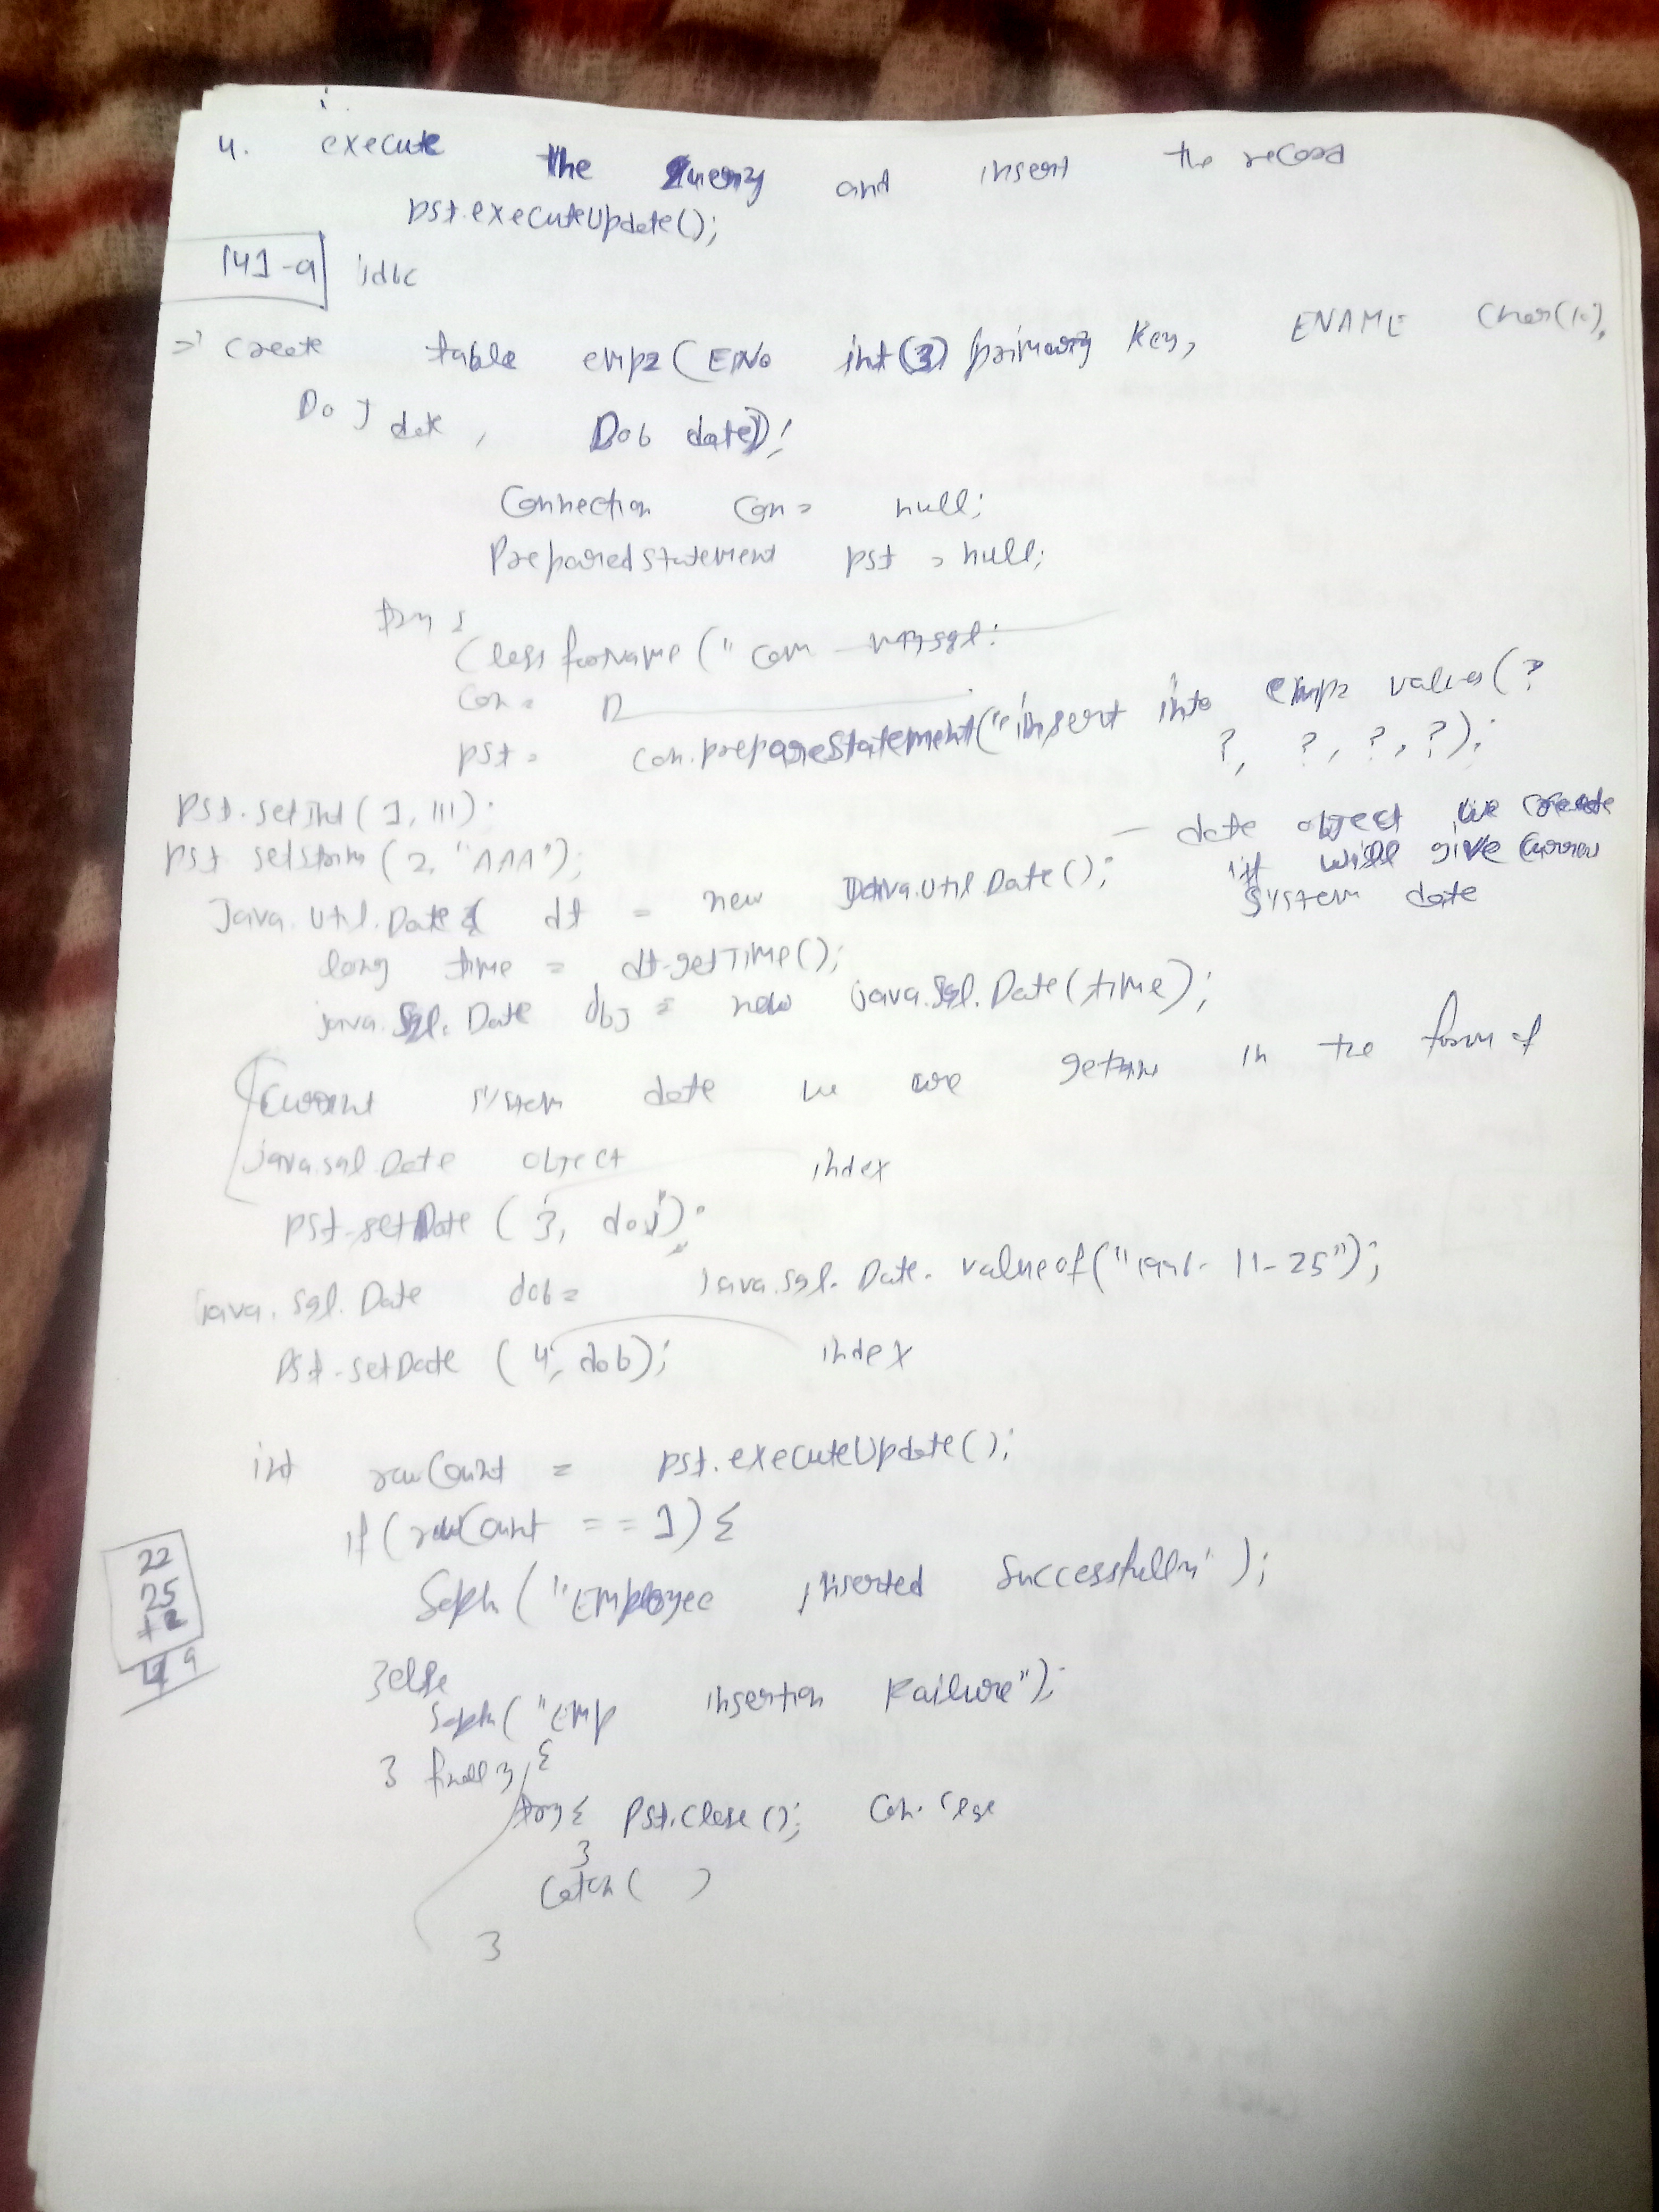 4. execute the query and insert the record
pst.executeUpdate();
141-a jdbc
=> Create table emp2 (ENo int(3) primary key, ENAME char(10),
DoJ date, Dob date);
Connection con = null;
PreparedStatement pst = null;
try {
Class forName (" com mysql.
con =
pst = con.prepareStatement("insert into emp2 values(?
?, ?, ?, ?);
pst.setInt(1, 111);
pst setString (2, "AAA");
Java.util.Date dt = new Java.util.Date(); — date object we create
it will give curren
system date
long time = dt.getTime();
java.sql.Date doj = new java.sql.Date(time);
Current system date we are getting in the form of
java.sql.Date object
index
pst.setDate (3, doj);
java.sql.Date dob = java.sql.Date.valueof("1996-11-25");
index
pst.setDate (4, dob);
int rowCount = pst.executeUpdate();
if (rowCount == 1) {
Sopln ("Employee inserted Successfully");
22
25
+2
49
}else
Sopln ("Emp insertion Failure");
} finally {
try { pst.close(); con.close
}
catch ( )
}